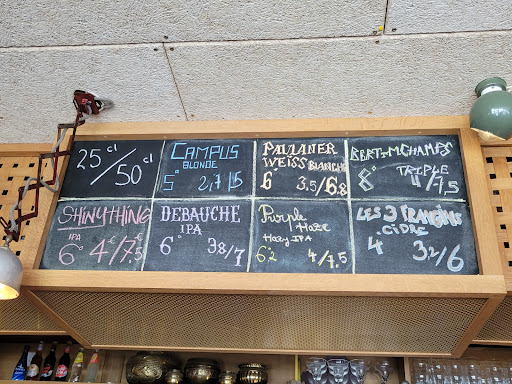 25cl/50cl
CAMPUS
BLONDE
5° 2,7/5
PAULANER
WEISS BLANCHE
6° 3.5/6.8
BERT-MCHAMPS
TRIPLE
8° 4/7,5
SHINYTHING
IPA
6° 4€/7,5
DEBAUCHE
IPA
6° 3.8/7
Purple
Haze
Hazy IPA
6°2 4/7.5
LES 3 FRANGINS
CIDRE
4 3,2/6